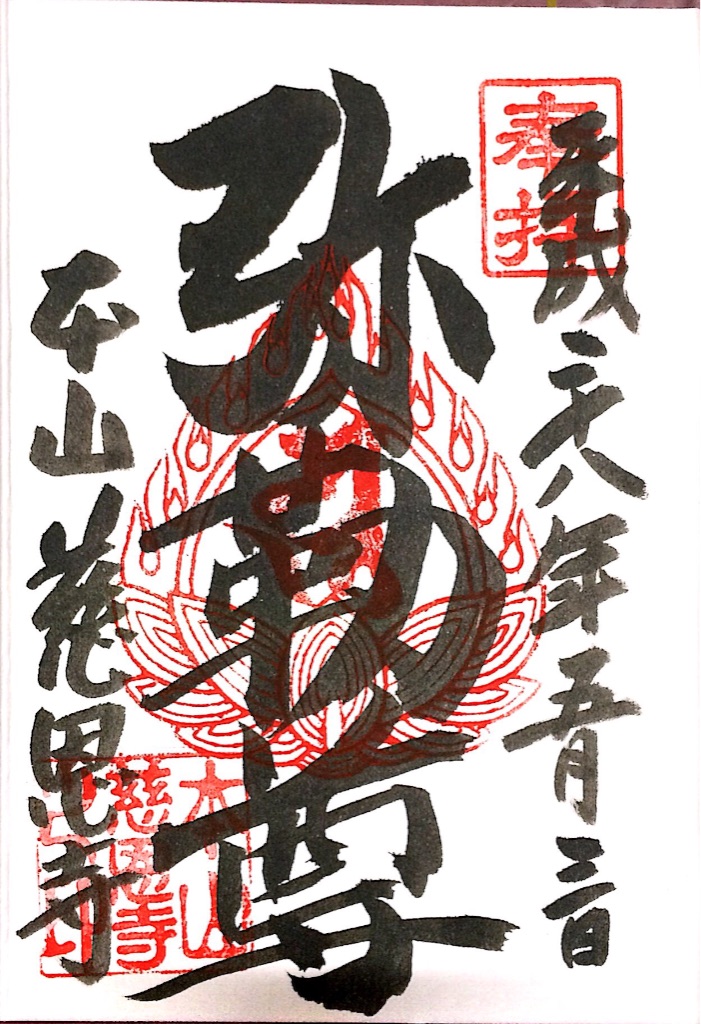 奉拝
平成二十八年五月三日
弥勒尊
本山慈恩寺
本山
慈恩寺